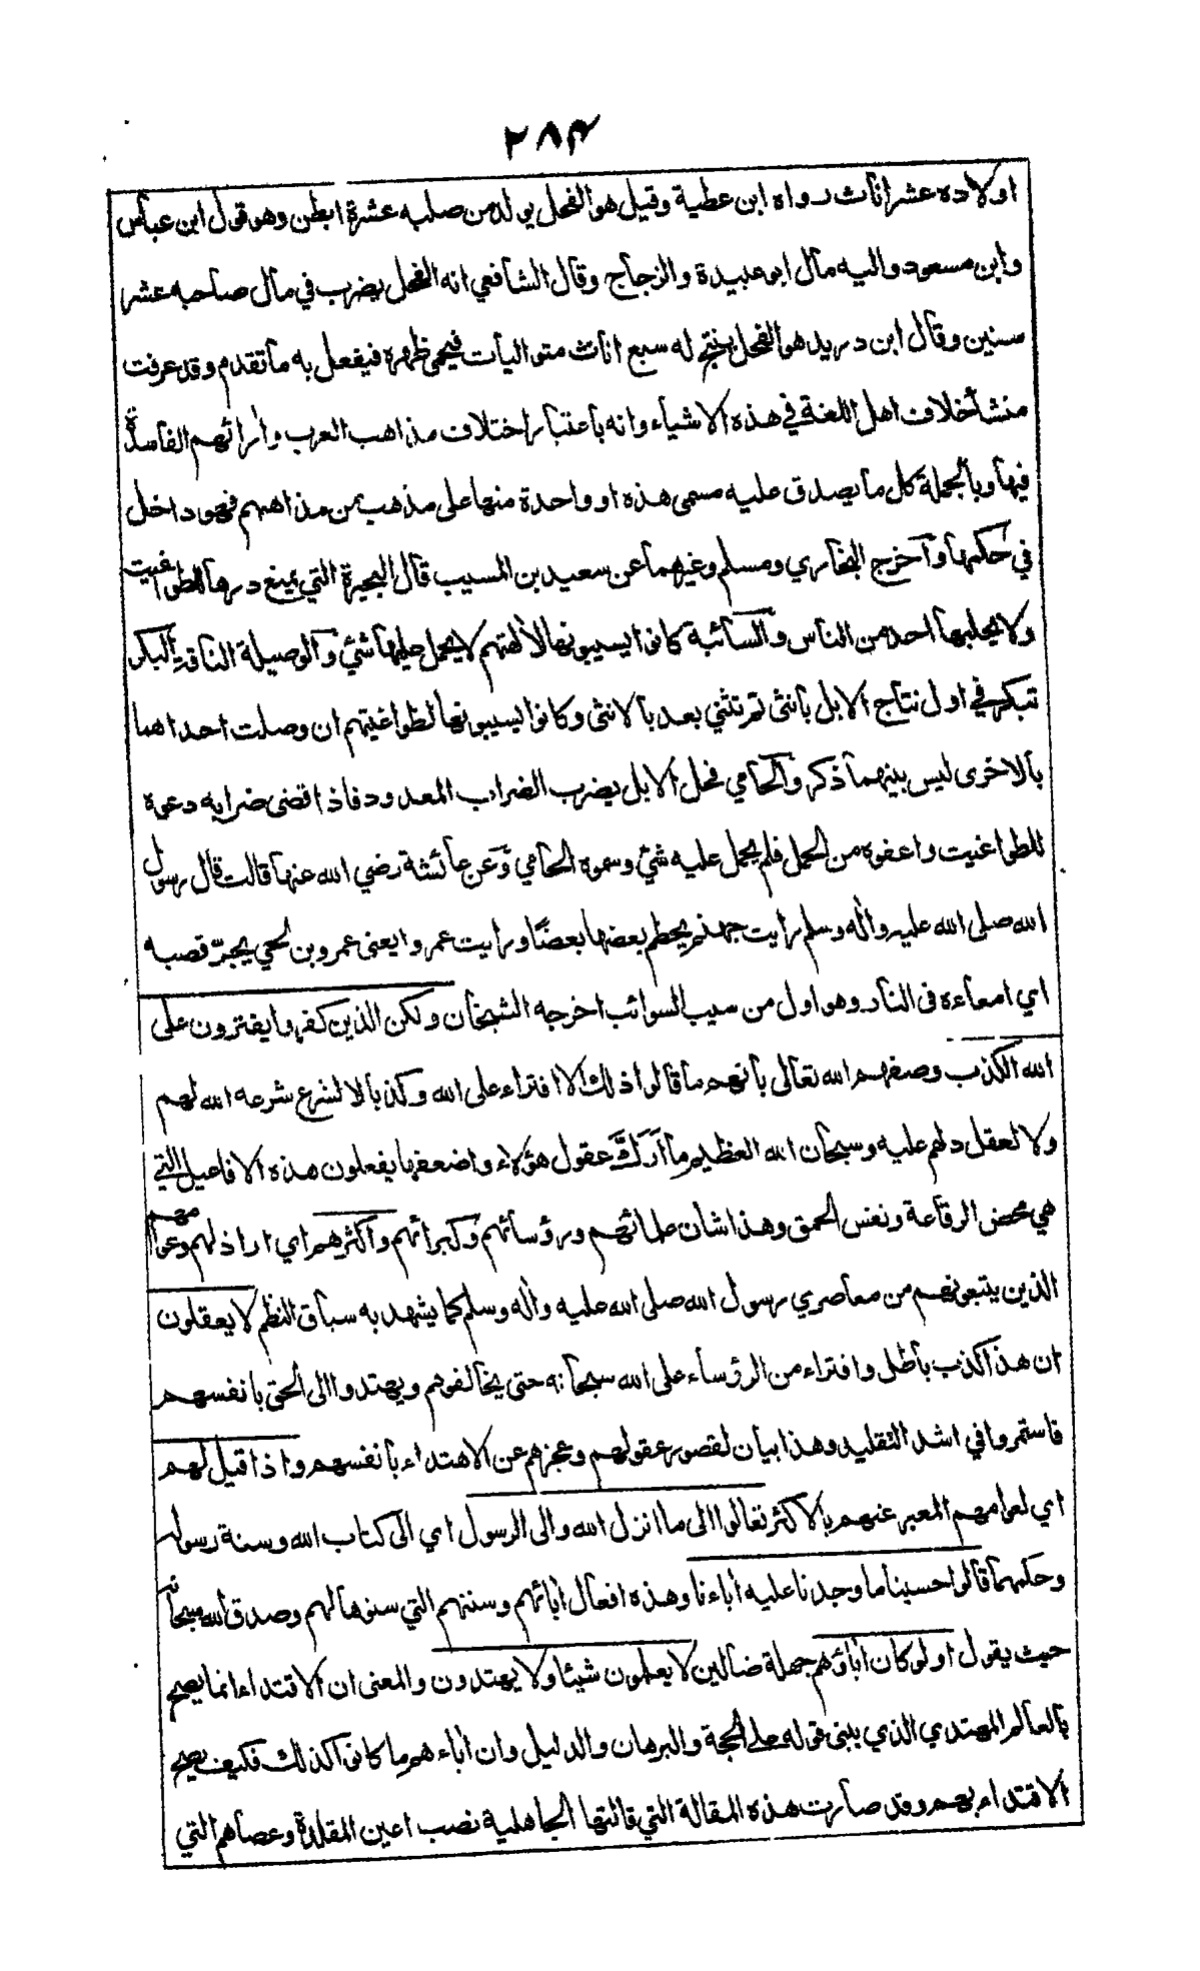 ٢٨٤
اولاده عشر اناث رواه ابن عطية وقيل هو الفحل يولد من صلبه عشرة ابطن وهو قول ابن عباس
وابن مسعود واليه مال ابو عبيدة والزجاج وقال الشافعي انه الفحل يضرب في مال صاحبه عشر
سنين وقال ابن دريد هو الفحل ينتج له سبع اناث متواليات فيحمى ظهره فيفعل به ما تقدم وقد عرفت
منشأ خلاف اهل اللغة في هذه الاشياء وانه باعتبار اختلاف مذاهب العرب وارائهم الفاسدة
فيها وبالجملة كل ما يصدق عليه مسمى هذه او واحدة منها على مذهب من مذاهبهم فهو داخل
في حكمها وأخرج البخاري ومسلم وغيرهما عن سعيد بن المسيب قال البحيرة التي يمنع درها للطواغيت
ولا يحلبها احد من الناس والسائبة كانوا يسيبونها لألهتهم لا يحمل عليها شئ والوصيلة الناقة البكر
تبكر في اول نتاج الابل بأنثى ثم تثني بعد بالانثى وكانوا يسيبونها لطواغيتهم ان وصلت احداهما
بالاخرى ليس بينهما ذكر والحامي فحل الابل يضرب الضراب المعدود فاذا قضى ضرابه دعوه
للطواغيت واعفوه من الحمل فلم يحمل عليه شئ وسموه الحامي وعن عائشة رضي الله عنها قالت قال رسول
الله صلى الله عليه وأله وسلم رايت جهنم يحطم بعضها بعضًا ورايت عمروا يعنى عمرو بن لحي يجرّ قصبه
اي امعاءه فى النار وهو اول من سيب السوائب اخرجه الشيخان ولكن الذين كفروا يفترون على
الله الكذب وصفهم الله تعالى بانهم ما قالوا ذلك الا افتراء على الله وكذبا لا لشرع شرعه الله لهم
ولا لعقل دلهم عليه وسبحان الله العظيم ما أَرَكَّ عقول هؤلاء واضعفها يفعلون هذه الافاعيل التي
هي محض الرقاعة ونفس الحمق وهذا شان علمائهم ورؤسائهم وكبرائهم واكثرهم اي اراذلهم وعوامهم
الذين يتبعونهم من معاصري رسول الله صلى الله عليه وأله وسلم كما يشهد به سياق النظم لا يعقلون
ان هذا كذب باطل وافتراء من الرؤساء على الله سبحانه حتى يخالفوهم ويهتدوا الى الحق بانفسهم
فاستمروا في اشد التقليد وهذا بيان لقصور عقولهم وعجزهم عن الاهتداء بأنفسهم واذا قيل لهم
اي لعوامهم المعبر عنهم بالاكثر تعالوا الى ما انزل الله والى الرسول اي الى كتاب الله وسنة رسوله
وحكمهما قالوا حسبنا ما وجدنا عليه أباءنا وهذه افعال أبائهم وسننهم التي سنوها لهم وصدق الله سبحانه
حيث يقول اولو كان أباؤهم جهلة ضالين لا يعلمون شيئا ولا يهتدون والمعنى ان الاقتداء انما يصح
بالعالم المهتدي الذي يبنى قوله على الحجة والبرهان والدليل وان أباءهم ما كانوا كذلك فكيف يصح
الاقتداء بهم وقد صارت هذه المقالة التي قالتها الجاهلية نصب اعين المقلدة وعصاهم التي